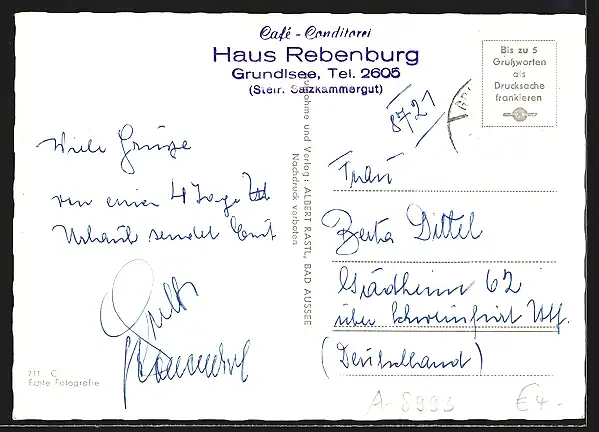 Café - Conditorei
Haus Rebenburg
Grundlsee, Tel. 2605
(Steir. Salzkammergut)
Bis zu 5
Grußworten
als
Drucksache
frankieren
8721
Viele Grüße
von einer 4 Tage
Urlaub sendet Euch
Frau
Berta Dittel
Gädheim 62
über Schweinfurt Ufr.
(Deutschland)
Aufnahme und Verlag: ALBERT RASTL, BAD AUSSEE
Nachdruck verboten
711 C
Echte Fotografie
A-8993
€4.-